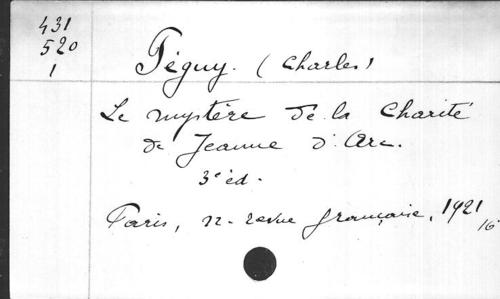 431
520
1
Péguy. (Charles)
Le mystère de la Charité
de Jeanne d'Arc.
3e éd.
Paris, n. revue française, 1921
16